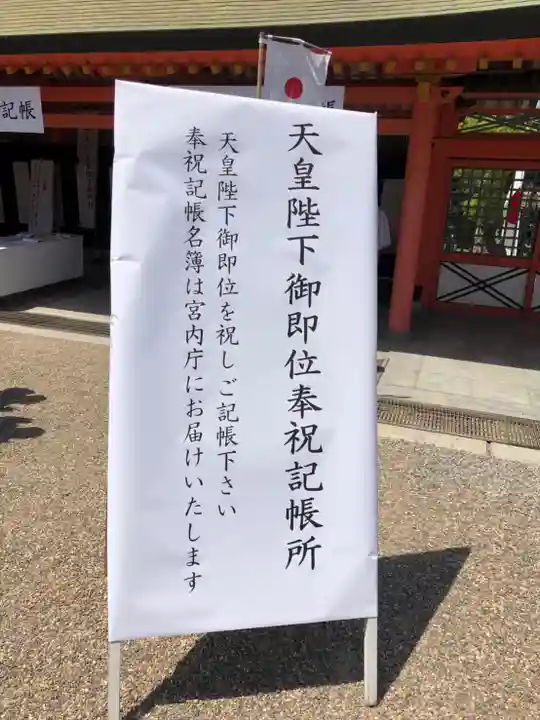 天皇陛下御即位奉祝記帳所
天皇陛下御即位を祝しご記帳下さい
奉祝記帳名簿は宮内庁にお届けいたします
記帳
帳